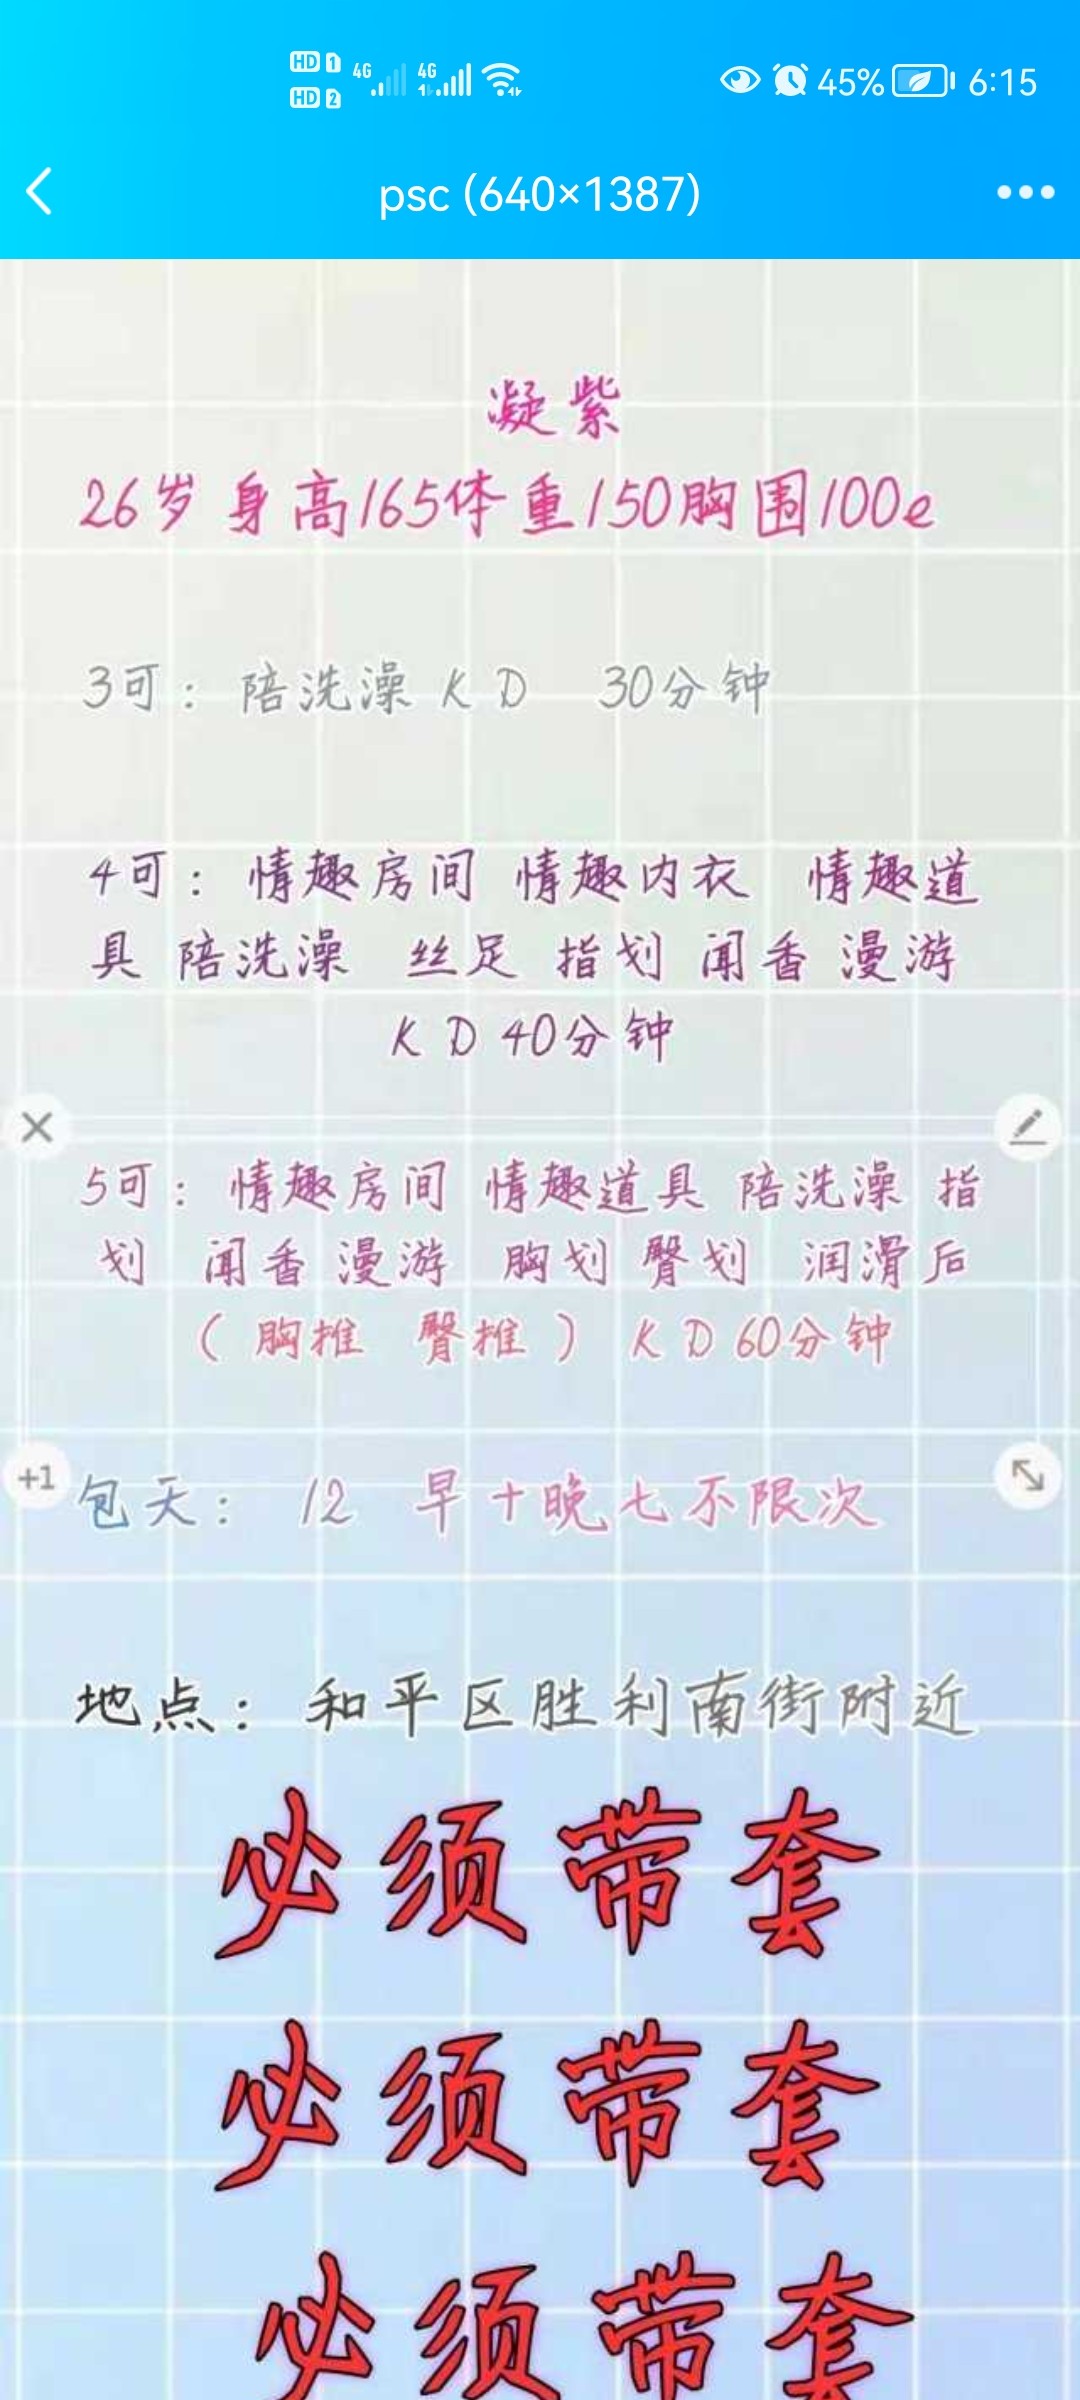 HD 1 4G 4G 45% 6:15
HD 2
psc (640×1387)
凝紫
26岁身高165体重150胸围100e
3可：陪洗澡 K D 30分钟
4可：情趣房间 情趣内衣 情趣道
具 陪洗澡 丝足 指划 闻香 漫游
K D 40分钟
5可：情趣房间 情趣道具 陪洗澡 指
划 闻香 漫游 胸划 臀划 润滑后
（胸推 臀推） K D 60分钟
+1
包天： 12 早十晚七不限次
地点：和平区胜利南街附近
必须带套
必须带套
必须带套